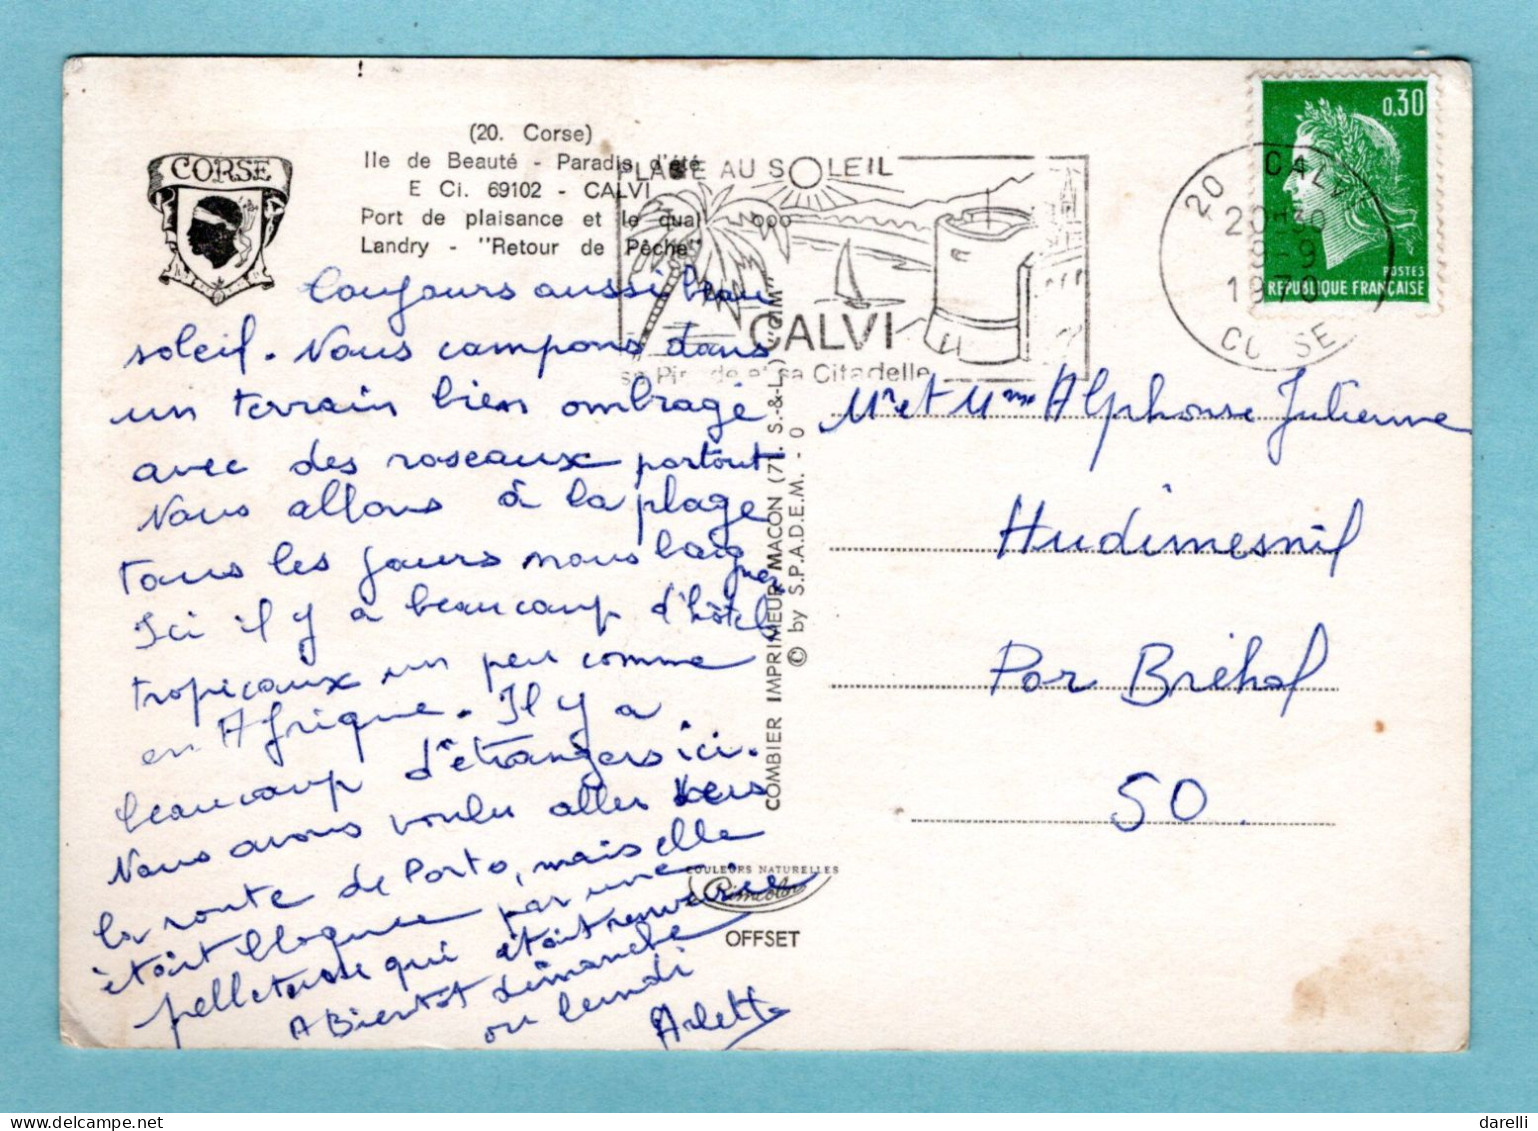 CORSE
(20. Corse)
Ile de Beauté - Paradis d'été
E Ci. 69102 - CALVI
Port de plaisance et le quai
Landry - "Retour de Pêche"
PLAGE AU SOLEIL
CALVI
sa Pinède et sa Citadelle
20 CALVI
20H30
8-9
1970
CORSE
0,30
POSTES
REPUBLIQUE FRANÇAISE
Toujours aussi beau
soleil. Nous campons dans
un terrain bien ombragé
avec des roseaux partout
Nous allons à la plage
tous les jours nous baig
ner.
Ici il y a beaucoup d'hôtels
tropicaux un peu comme
en Afrique. Il y a
beaucoup d'étrangers ici.
Nous avons voulu aller vers
la route de Porto, mais elle
était bloquée par une
pelleteuse qui était renversée
A Bientôt dimanche
ou lundi
Arlette
COMBIER IMPRIMEUR MACON (71. S.-&-L.) "CIM"
© by S.P.A.D.E.M. - 0
COULEURS NATURELLES
Cimcolor
OFFSET
Mr et Mme Alphonse Julienne
Hudimesnil
Par Bréhal
50.
darelli